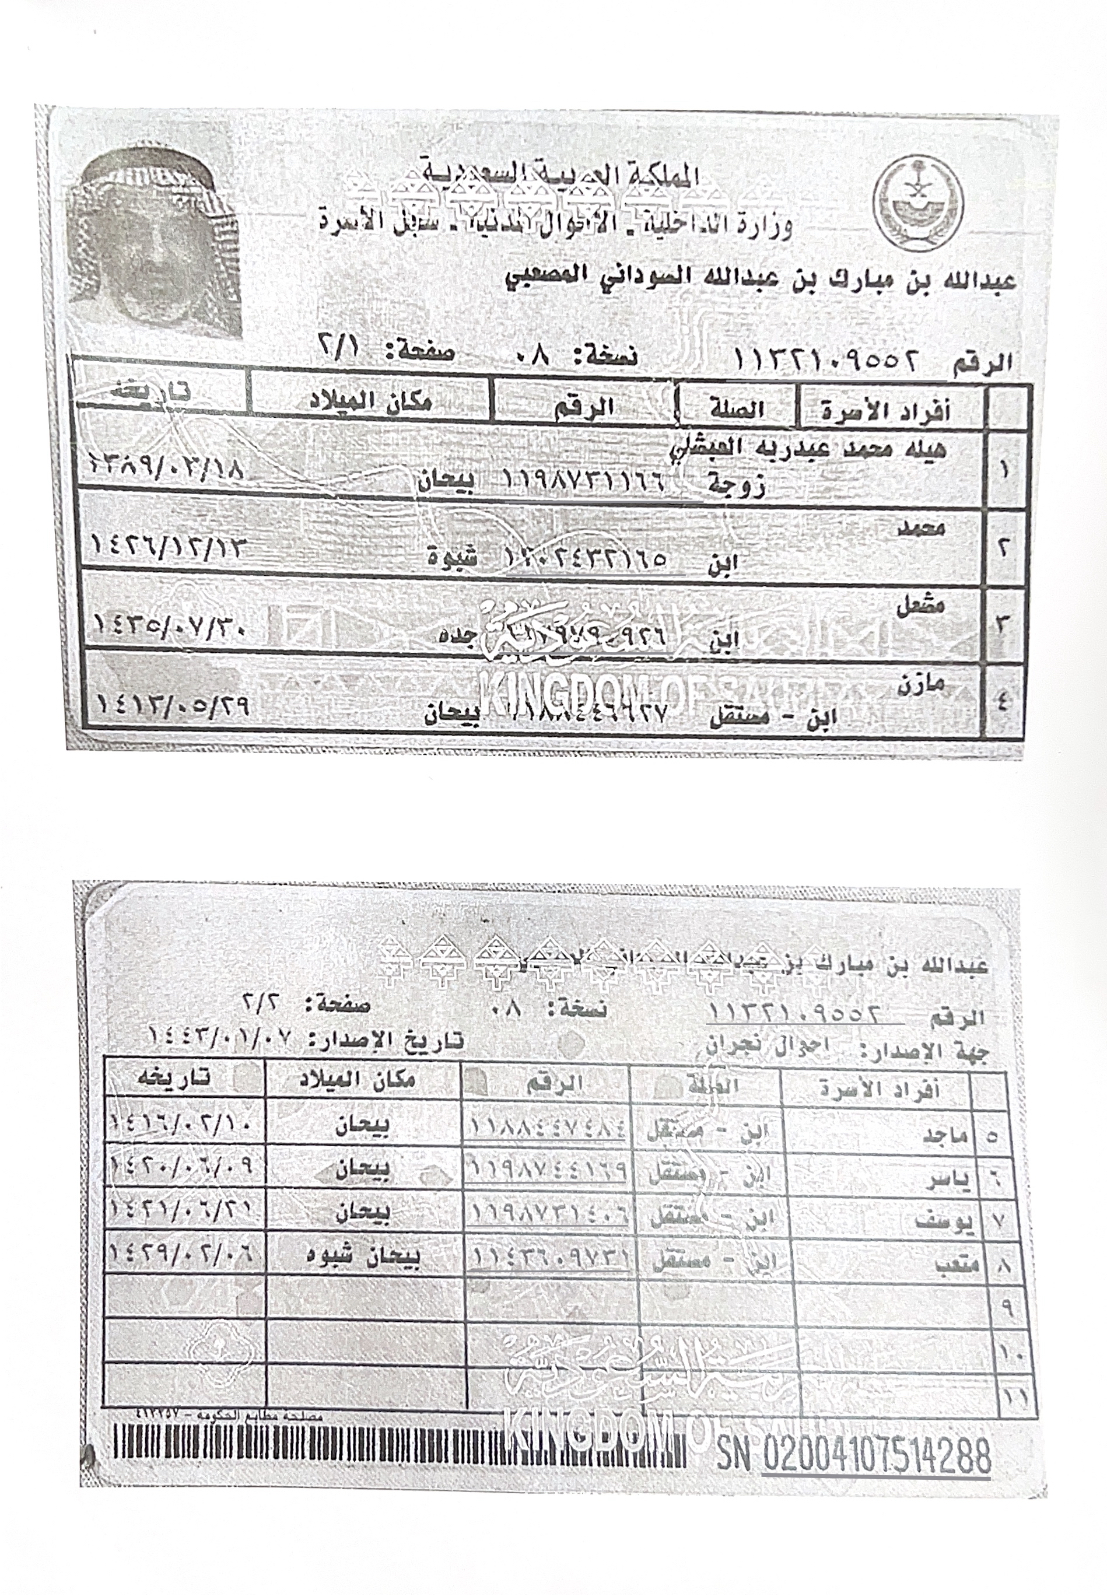 المملكة العربية السعودية
وزارة الداخلية - الأحوال المدنية - سجل الأسرة
عبدالله بن مبارك بن عبدالله السوداني المصعبي
الرقم ١١٣٢١٠٩٥٥٢ نسخة: ٠٨ صفحة: ٢/١
أفراد الأسرة الصلة الرقم مكان الميلاد تاريخه
١ هيله محمد عبدربه
زوجة ١١٩٨٧٣١١٦٦ بيحان ١٣٨٩/٠٣/١٨
٢ محمد
ابن ١٢٠٢٤٣٢١٦٥ شبوة ١٤٢٦/١٢/١٣
٣ مشعل
ابن جده ١٤٣٥/٠٧/٣٠
٤ مازن
ابن - مستقل ١١٨٨٤٤٩٩٢٧ بيحان ١٤١٣/٠٥/٢٩
KINGDOM OF SAUDI
عبدالله بن مبارك بن
الرقم ١١٣٢١٠٩٥٥٢ نسخة: ٠٨ صفحة: ٢/٢
جهة الإصدار: احوال نجران تاريخ الإصدار: ١٤٤٣/٠١/٠٧
أفراد الأسرة الصلة الرقم مكان الميلاد تاريخه
٥ ماجد ابن - مستقل ١١٨٨٤٤٧٤٨٤ بيحان ١٤١٦/٠٢/١٠
٦ ياسر ابن - مستقل ١١٩٨٧٤٤١٦٩ بيحان ١٤٢٠/٠٦/٠٩
٧ يوسف ابن - مستقل ١١٩٨٧٣١٤٠٦ بيحان ١٤٢١/٠٦/٢١
٨ متعب ابن - مستقل ١١٤٣٦٠٩٧٣١ بيحان شبوه ١٤٢٩/٠٢/٠٦
٩
١٠
١١
مصلحة مطابع الحكومة - ٤١٢٣٥٧
KINGDOM OF
SN 02004107514288